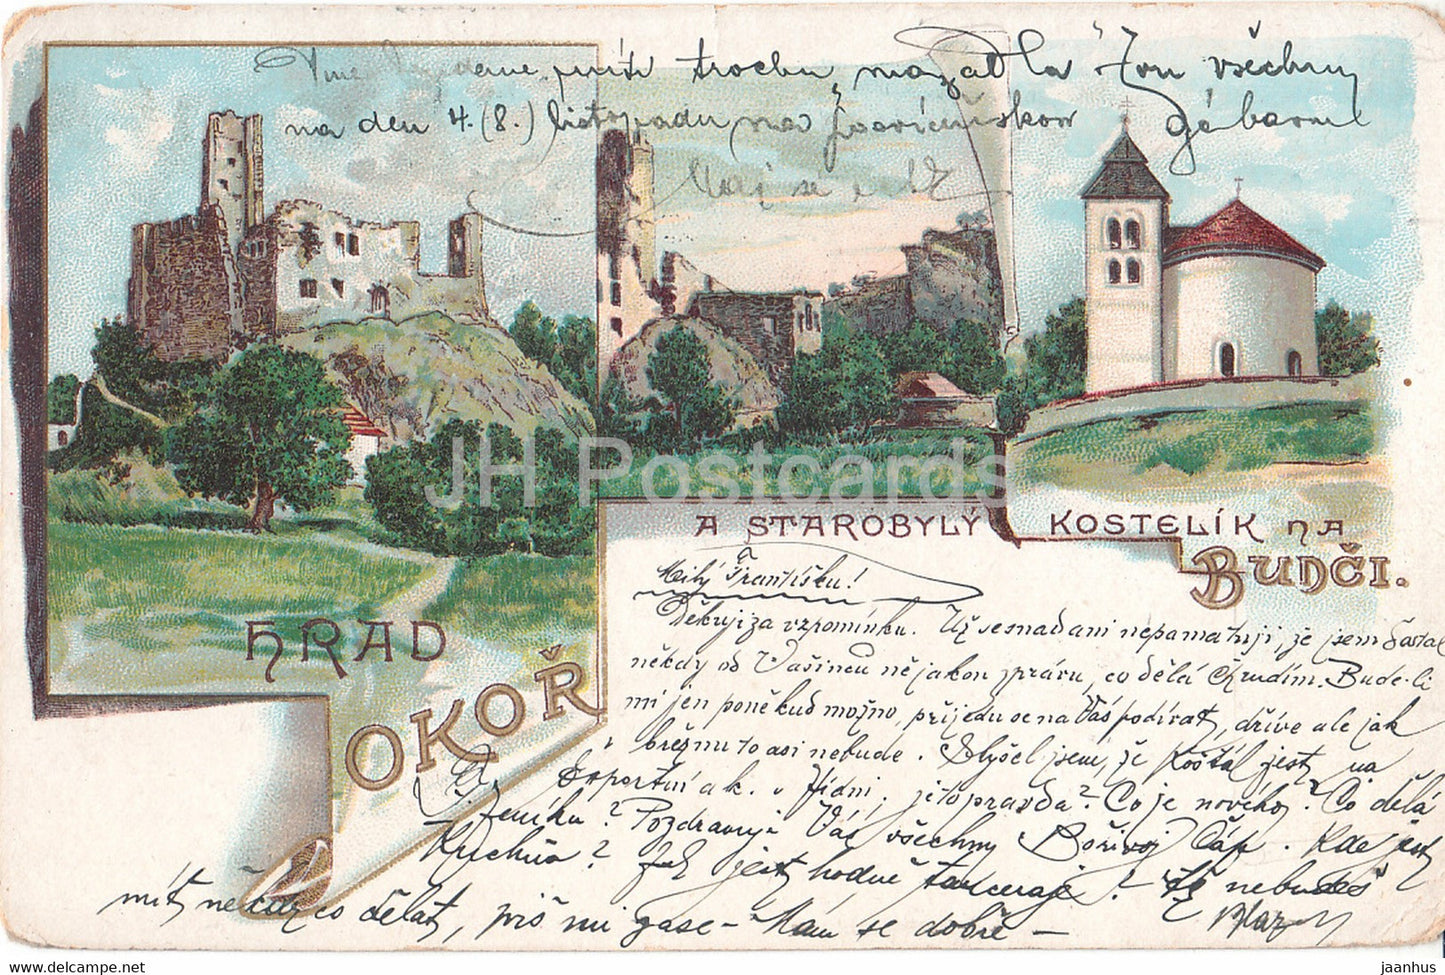 příští trochu mazadla Ton všechny
na den 4. (8.) listopadu na
Maj se
A STAROBYLÝ KOSTELÍK NA
BUDČI.
HRAD
OKOŘ
JH Postcards
Milý Františku!
Děkuji za vzpomínku. Už se snad ani nepamatuji, že jsem dostal
někdy od Vašincu nějakou zprávu, co dělá Chrudim. Bude-li
mi jen poněkud možno, přijedu se na Vás podívat, dříve ale jak
v březnu to asi nebude. Slyšel jsem, že Košťál jest na
Exportní ak. v Vídni, je to pravda? Co je nového? Co dělá
Ženíku? Pozdravuji Vás všechny Bořivoj Čáp. Kde jest
Kuchňa? Jak jest hodně tancuje? Až nebudeš
mít něčeho co dělat, piš mi zase – Mám se dobře –
jaanhus
www.delcampe.net